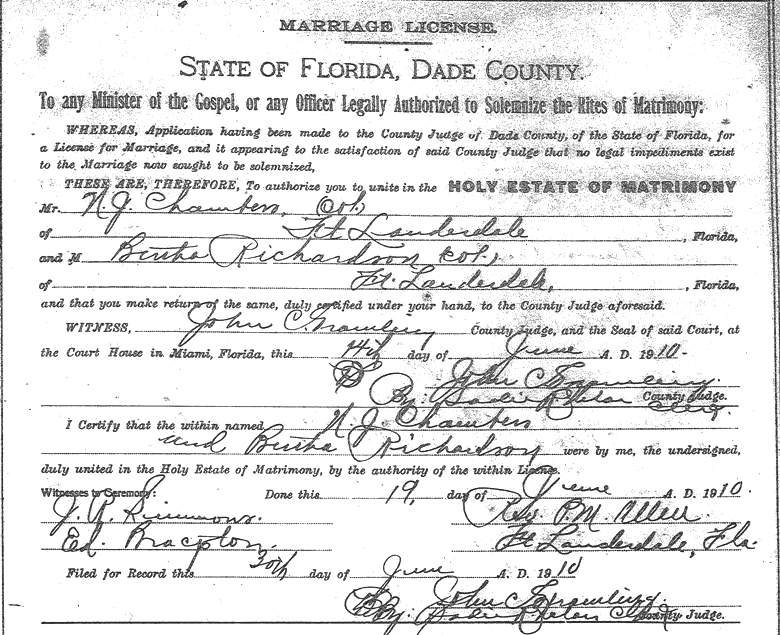 MARRIAGE LICENSE.
STATE OF FLORIDA, DADE COUNTY.
To any Minister of the Gospel, or any Officer Legally Authorized to Solemnize the Rites of Matrimony:
WHEREAS, Application having been made to the County Judge of Dade County, of the State of Florida, for
a License for Marriage, and it appearing to the satisfaction of said County Judge that no legal impediments exist
to the Marriage now sought to be solemnized,
THESE ARE, THEREFORE, To authorize you to unite in the HOLY ESTATE OF MATRIMONY
Mr. N. J. Chambers, Col,
of Ft Lauderdale, Florida,
and M Bertha Richardson Col,
of Ft. Lauderdale, , Florida,
and that you make return of the same, duly certified under your hand, to the County Judge aforesaid.
WITNESS, John C. Gramling County Judge, and the Seal of said Court, at
the Court House in Miami, Florida, this 14th day of June A. D. 1910-
John C Gramling.
By: County Judge.
Clerk.
I Certify that the within named N. J. Chambers
and Bertha Richardson were by me, the undersigned,
duly united in the Holy Estate of Matrimony, by the authority of the within License.
Witnesses to Ceremony: Done this 19, day of June A. D. 1910.
J. R. Simmons. Rev P. M. Allen
Ed. Ft Lauderdale, Fla.
Filed for Record this 30th day of June A. D. 1910
John C Gramling.
By: County Judge.